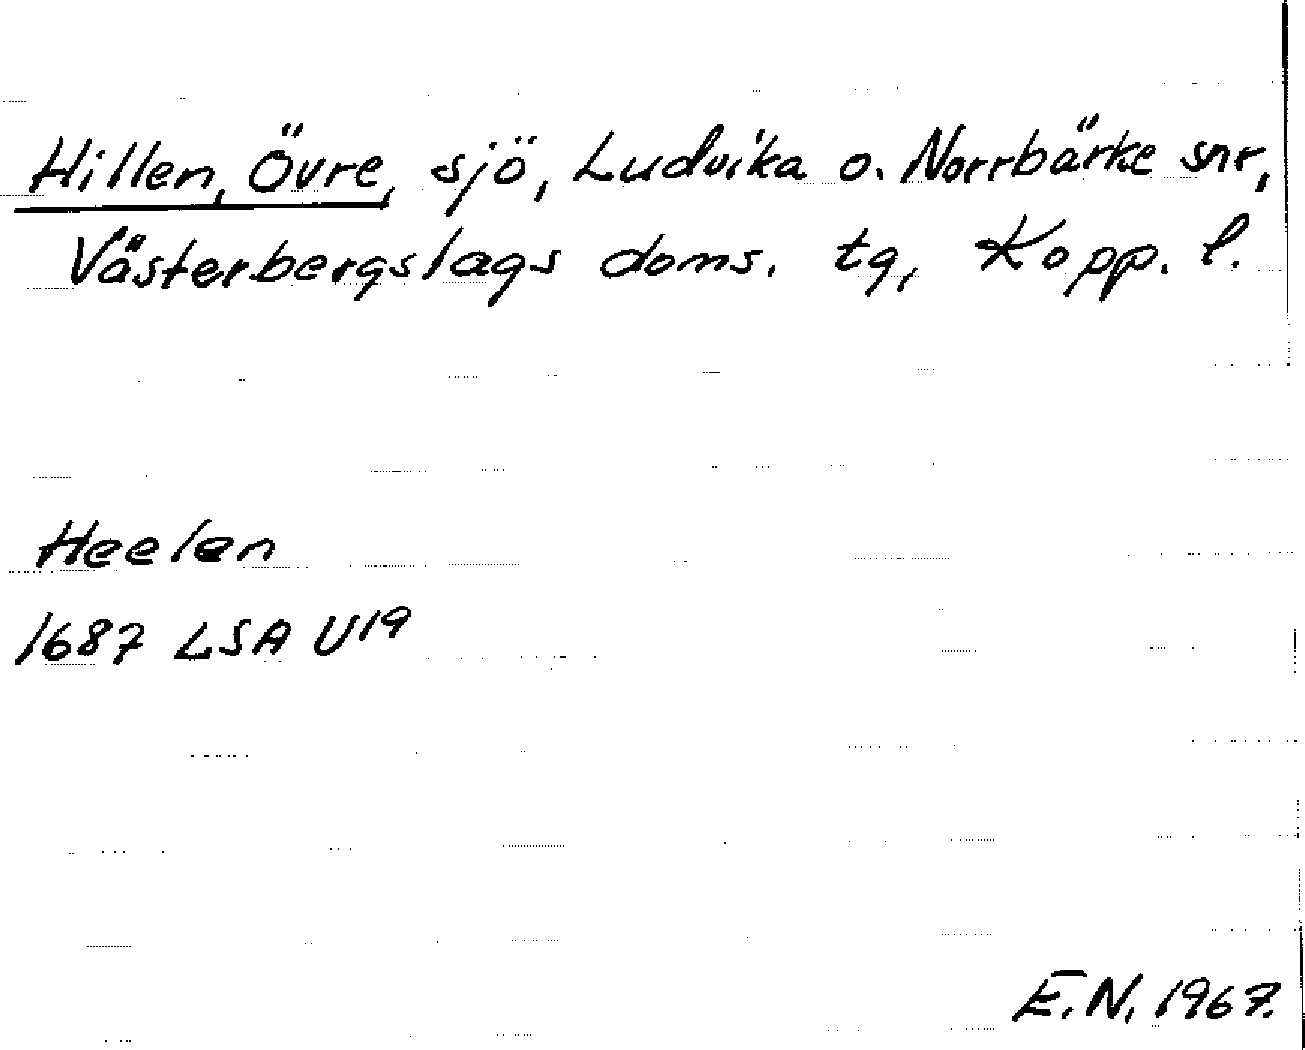 Hillen, Övre, sjö, Ludvika o. Norrbärke snr,
Västerbergslags doms. tg, Kopp. l.
Heelen
1687 LSA U19
E.N. 1967.